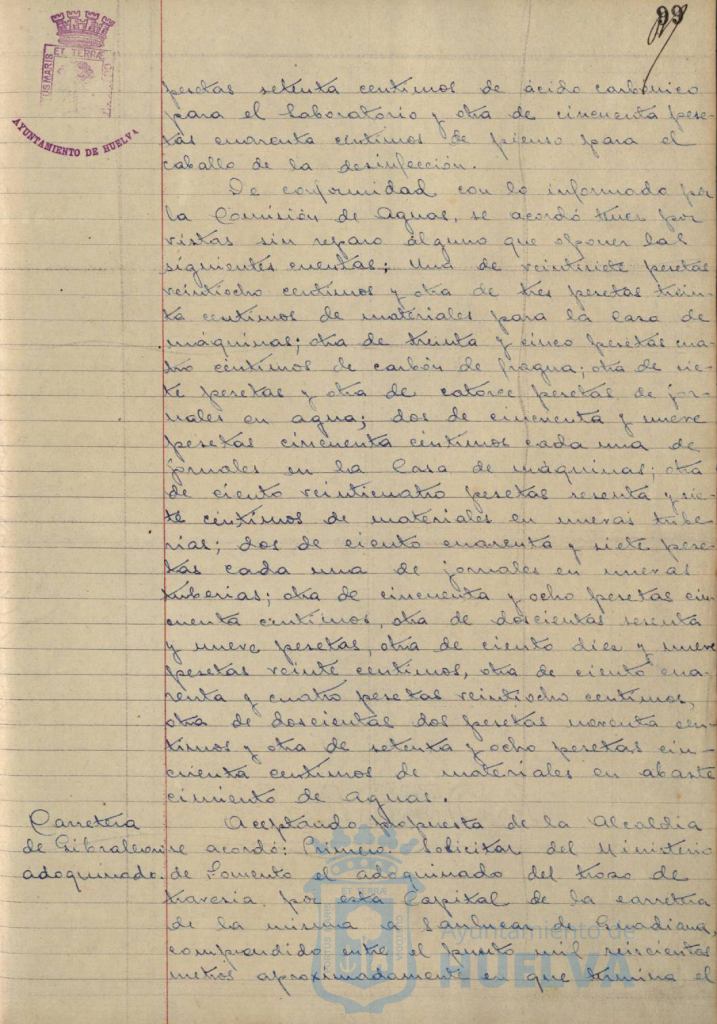 99
ET TERRÆ
AYUNTAMIENTO DE HUELVA
pesetas setenta centimos de ácido carbónico
para el laboratorio y otra de cincuenta pese-
tas cuarenta centimos de pienso para el
caballo de la desinfección.
De conformidad con lo informado por
la Comisión de Aguas, se acordó tener por
vistas sin reparo alguno que oponer las
siguientes cuentas; una de veintisiete pesetas
veintiocho centimos y otra de tres pesetas trein-
ta centimos de materiales para la Casa de
máquinas; otra de treinta y cinco pesetas cua-
tro centimos de carbón de fragua; otra de sie-
te pesetas y otra de catorce pesetas de jor-
nales en agua; dos de cincuenta y nueve
pesetas cincuenta centimos cada una de
jornales en la Casa de máquinas; otra
de ciento veinticuatro pesetas sesenta y sie-
te centimos de materiales en nuevas tube-
rias; dos de ciento cuarenta y siete pese-
tas cada una de jornales en nuevas
tuberias; otra de cincuenta y ocho pesetas cin-
cuenta centimos, otra de doscientas sesenta
y nueve pesetas, otra de ciento diez y nueve
pesetas veinte centimos, otra de ciento cua-
renta y cuatro pesetas veintiocho centimos,
otra de doscientas dos pesetas noventa cen-
timos y otra de setenta y ocho pesetas cin-
cuenta centimos de materiales en abaste
cimiento de aguas.
Carretera
de Gibraleon
adoquinado.
Aceptando propuesta de la Alcaldia
se acordó: Primero. Solicitar del Ministerio
de Fomento el adoquinado del trozo de
travesia por esta Capital de la carretera
de la misma a Sanlucar de Guadiana,
comprendido entre el punto mil seiscientos
metros aproximadamente en que termina el
Ayuntamiento de
HUELVA